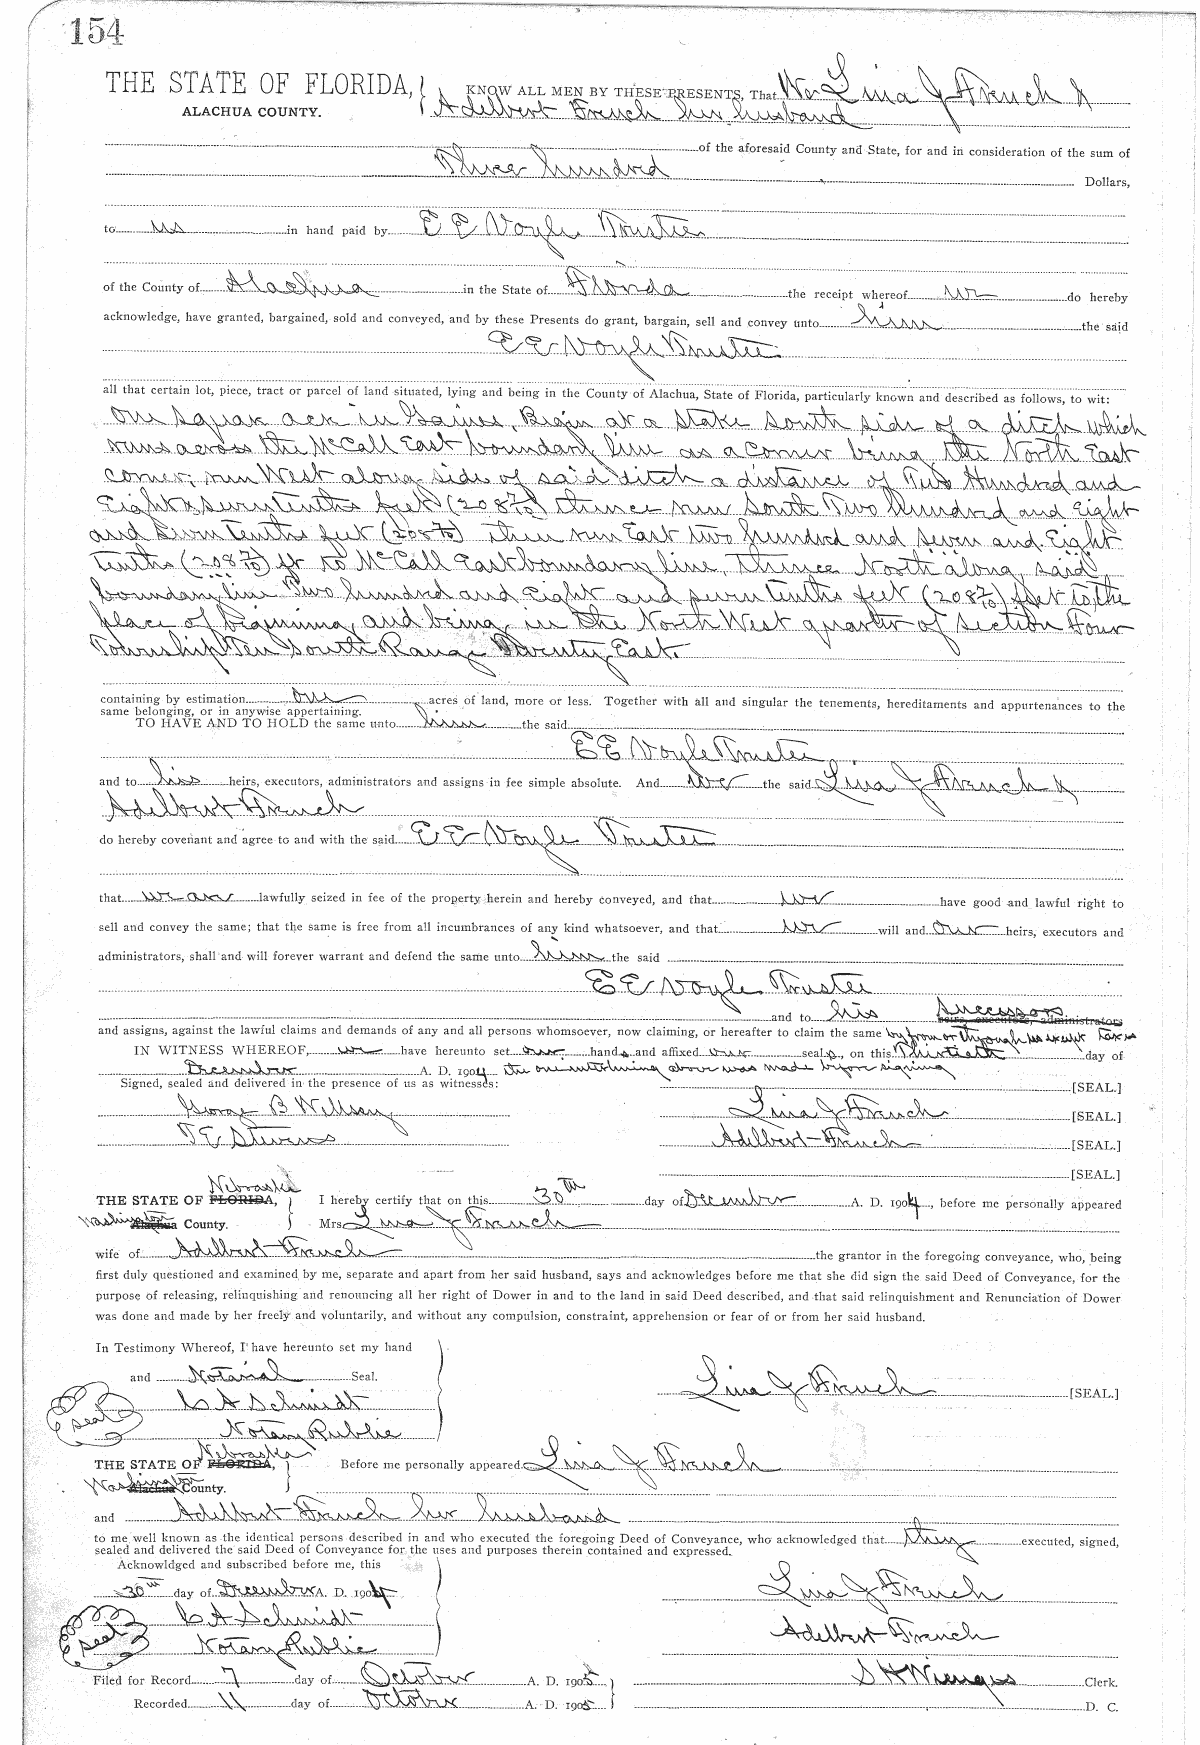 154
THE STATE OF FLORIDA, KNOW ALL MEN BY THESE PRESENTS, That We Lina J French &
ALACHUA COUNTY. Adelbert French her husband
of the aforesaid County and State, for and in consideration of the sum of
Three hundred Dollars,
to us in hand paid by E E Voyle Trustee
of the County of Alachua in the State of Florida the receipt whereof we do hereby
acknowledge, have granted, bargained, sold and conveyed, and by these Presents do grant, bargain, sell and convey unto him the said
E E Voyle Trustee
all that certain lot, piece, tract or parcel of land situated, lying and being in the County of Alachua, State of Florida, particularly known and described as follows, to wit:
One square acre in Gaines. Begin at a stake south side of a ditch which
runs across the McCall East boundary line as a corner being the North East
corner; run West along side of said ditch a distance of Two Hundred and
Eight & seventenths feet (208 7/10) thence run South Two hundred and Eight
and seven tenths feet (208 7/10) then run East two hundred and seven and Eight
tenths (208 7/10) ft to McCall East boundary line, thence North along said
boundary line Two hundred and Eight and seven tenths feet (208 7/10) feet to the
place of beginning, and being in the North West quarter of section Four
Township Ten South Range Twenty East.
containing by estimation one acres of land, more or less. Together with all and singular the tenements, hereditaments and appurtenances to the
same belonging, or in anywise appertaining.
TO HAVE AND TO HOLD the same unto him the said
E E Voyle Trustee
and to his heirs, executors, administrators and assigns in fee simple absolute. And we the said Lina J French &
Adelbert French
do hereby covenant and agree to and with the said E E Voyle Trustee
that we are lawfully seized in fee of the property herein and hereby conveyed, and that we have good and lawful right to
sell and convey the same; that the same is free from all incumbrances of any kind whatsoever, and that we will and our heirs, executors and
administrators, shall and will forever warrant and defend the same unto him the said
E E Voyle Trustee
and to his successors heirs, executors, administrators
and assigns, against the lawful claims and demands of any and all persons whomsoever, now claiming, or hereafter to claim the same by from or through us except taxes
IN WITNESS WHEREOF, we have hereunto set our hands and affixed our seals, on this Thirtieth day of
December A. D. 1904 the one interlining above was made before signing
Signed, sealed and delivered in the presence of us as witnesses: [SEAL.]
George B Willsey Lina J French [SEAL.]
T E Stevens Adelbert French [SEAL.]
[SEAL.]
Nebraska
THE STATE OF FLORIDA, I hereby certify that on this 30th day of December A. D. 1904, before me personally appeared
Washington Alachua County. Mrs. Lina J French
wife of Adelbert French the grantor in the foregoing conveyance, who, being
first duly questioned and examined by me, separate and apart from her said husband, says and acknowledges before me that she did sign the said Deed of Conveyance, for the
purpose of releasing, relinquishing and renouncing all her right of Dower in and to the land in said Deed described, and that said relinquishment and Renunciation of Dower
was done and made by her freely and voluntarily, and without any compulsion, constraint, apprehension or fear of or from her said husband.
In Testimony Whereof, I have hereunto set my hand
and Notarial Seal. Lina J French [SEAL.]
seal C A Schmidt
Notary Public
Nebraska
THE STATE OF FLORIDA, Before me personally appeared Lina J French
Washington Alachua County.
and Adelbert French her husband
to me well known as the identical persons described in and who executed the foregoing Deed of Conveyance, who acknowledged that they executed, signed,
sealed and delivered the said Deed of Conveyance for the uses and purposes therein contained and expressed.
Acknowldged and subscribed before me, this
30th day of December A. D. 1904 Lina J French
C A Schmidt
seal Notary Public Adelbert French
Filed for Record 7 day of October A. D. 1905 S H Wienges Clerk.
Recorded 11 day of October A. D. 1905 D. C.